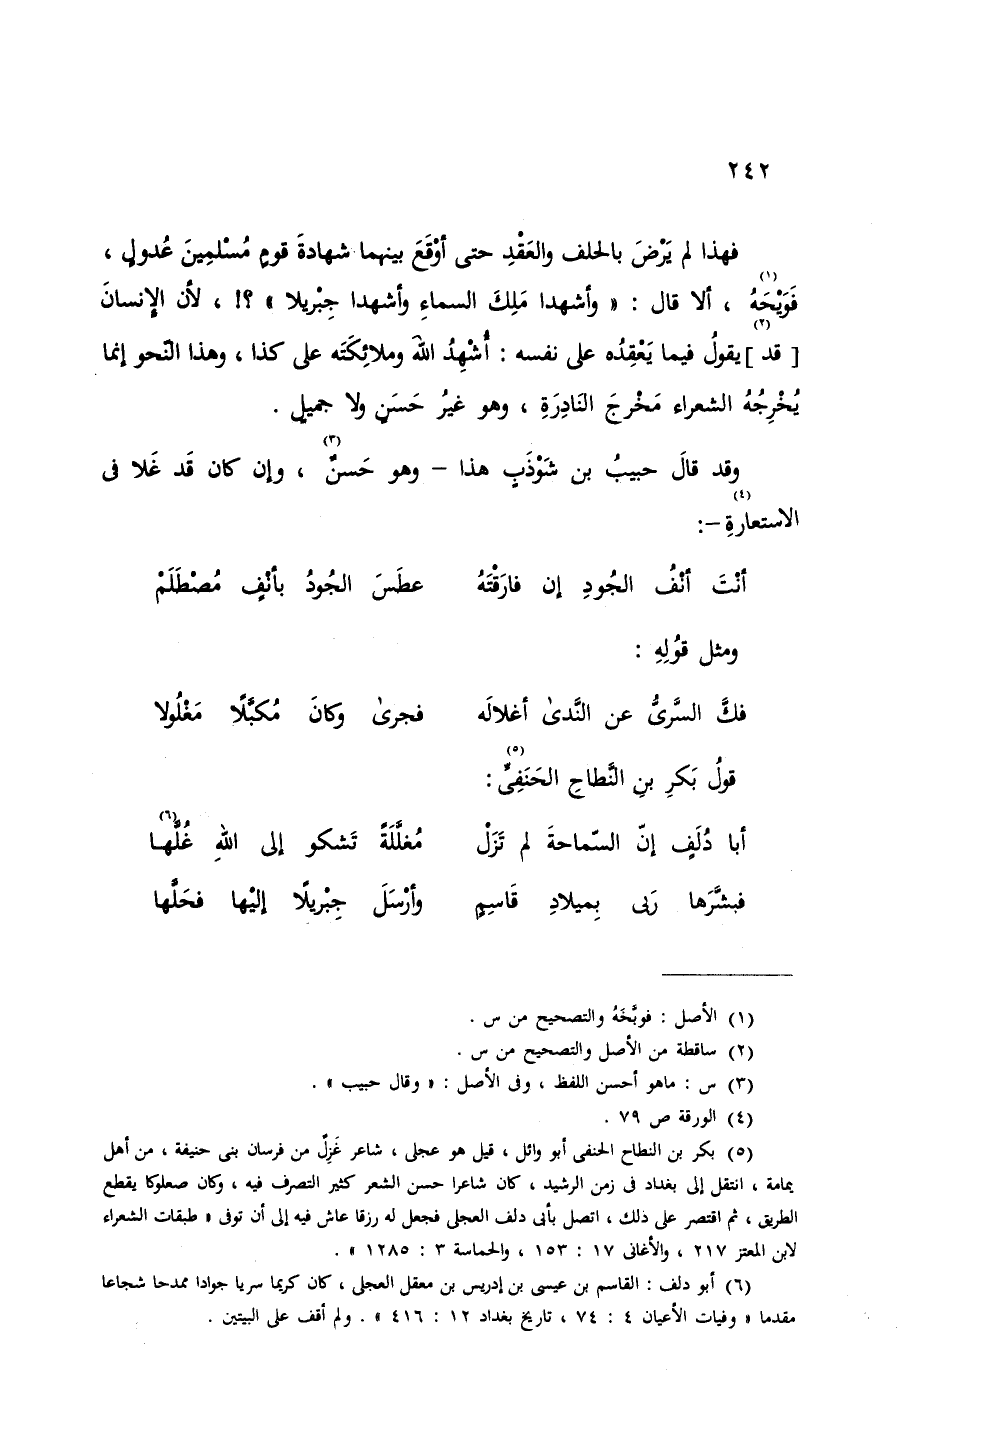 ٢٤٢
فهذا لم يَرْضَ بالحلف والعَقْدِ حتى أوْقَعَ بينهما شهادةَ قومٍ مُسْلمِينَ عُدولٍ ،
فَوَيْحَهُ (١) ، ألا قال : « وأشهدا مَلِكَ السماءِ وأشهدا جِبْريلا » ؟! ، لأن الإنسانَ
[ قد ] (٢) يقولُ فيما يَعْقِدُه على نفسه : أُشْهِدُ اللهَ وملائِكَتَه على كذا ، وهذا النّحو إنما
يُخْرِجُهُ الشعراء مَخْرجَ النَادِرَةِ ، وهو غيرُ حَسَنٍ ولا جميلٍ .
وقد قالَ حبيبُ بن شَوْذَبٍ هذا – وهو حَسنٌ (٣) ، وإن كان قَد غَلا فى
الاستعارةِ (٤) –:
أنْتَ أنْفُ الجُودِ إن فارَقْتَهُ عطَسَ الجُودُ بأنْفٍ مُصْطَلَمْ
ومثل قوُلِهِ :
فكَّ السَّرىُّ عن النَّدىٰ أغلالَه فجرىٰ وكانَ مُكبَّلًا مَغْلُولا
قولُ بَكرِ بنِ النَّطاحِ الحَنَفِىِّ (٥) :
أبا دُلَفٍ إنّ السّماحةَ لم تَزَلْ مُغلَّلَةً تَشكو إلى اللهِ غُلَّها (٦)
فبشَّرَها رَبى بِميلادِ قَاسِمٍ وأرْسَلَ جِبْريلًا إليْها فحَلَّها
(١) الأصل : فوبَّخَهُ والتصحيح من س .
(٢) ساقطة من الأصل والتصحيح من س .
(٣) س : ماهو أحسن اللفظ ، وفى الأصل : « وقال حبيب » .
(٤) الورقة ص ٧٩ .
(٥) بكر بن النطاح الحنفى أبو وائل ، قيل هو عجلى ، شاعر غَزِلٌ من فرسان بنى حنيفة ، من أهل
يمامة ، انتقل إلى بغداد فى زمن الرشيد ، كان شاعرا حسن الشعر كثير التصرف فيه ، وكان صعلوكا يقطع
الطريق ، ثم اقتصر على ذلك ، اتصل بأبى دلف العجلى فجعل له رزقا عاش فيه إلى أن توفى « طبقات الشعراء
لابن المعتز ٢١٧ ، والأغانى ١٧ : ١٥٣ ، والحماسة ٣ : ١٢٨٥ » .
(٦) أبو دلف : القاسم بن عيسى بن إدريس بن معقل العجلى ، كان كريما سريا جوادا ممدحا شجاعا
مقدما « وفيات الأعيان ٤ : ٧٤ ، تاريخ بغداد ١٢ : ٤١٦ » . ولم أقف على البيتين .